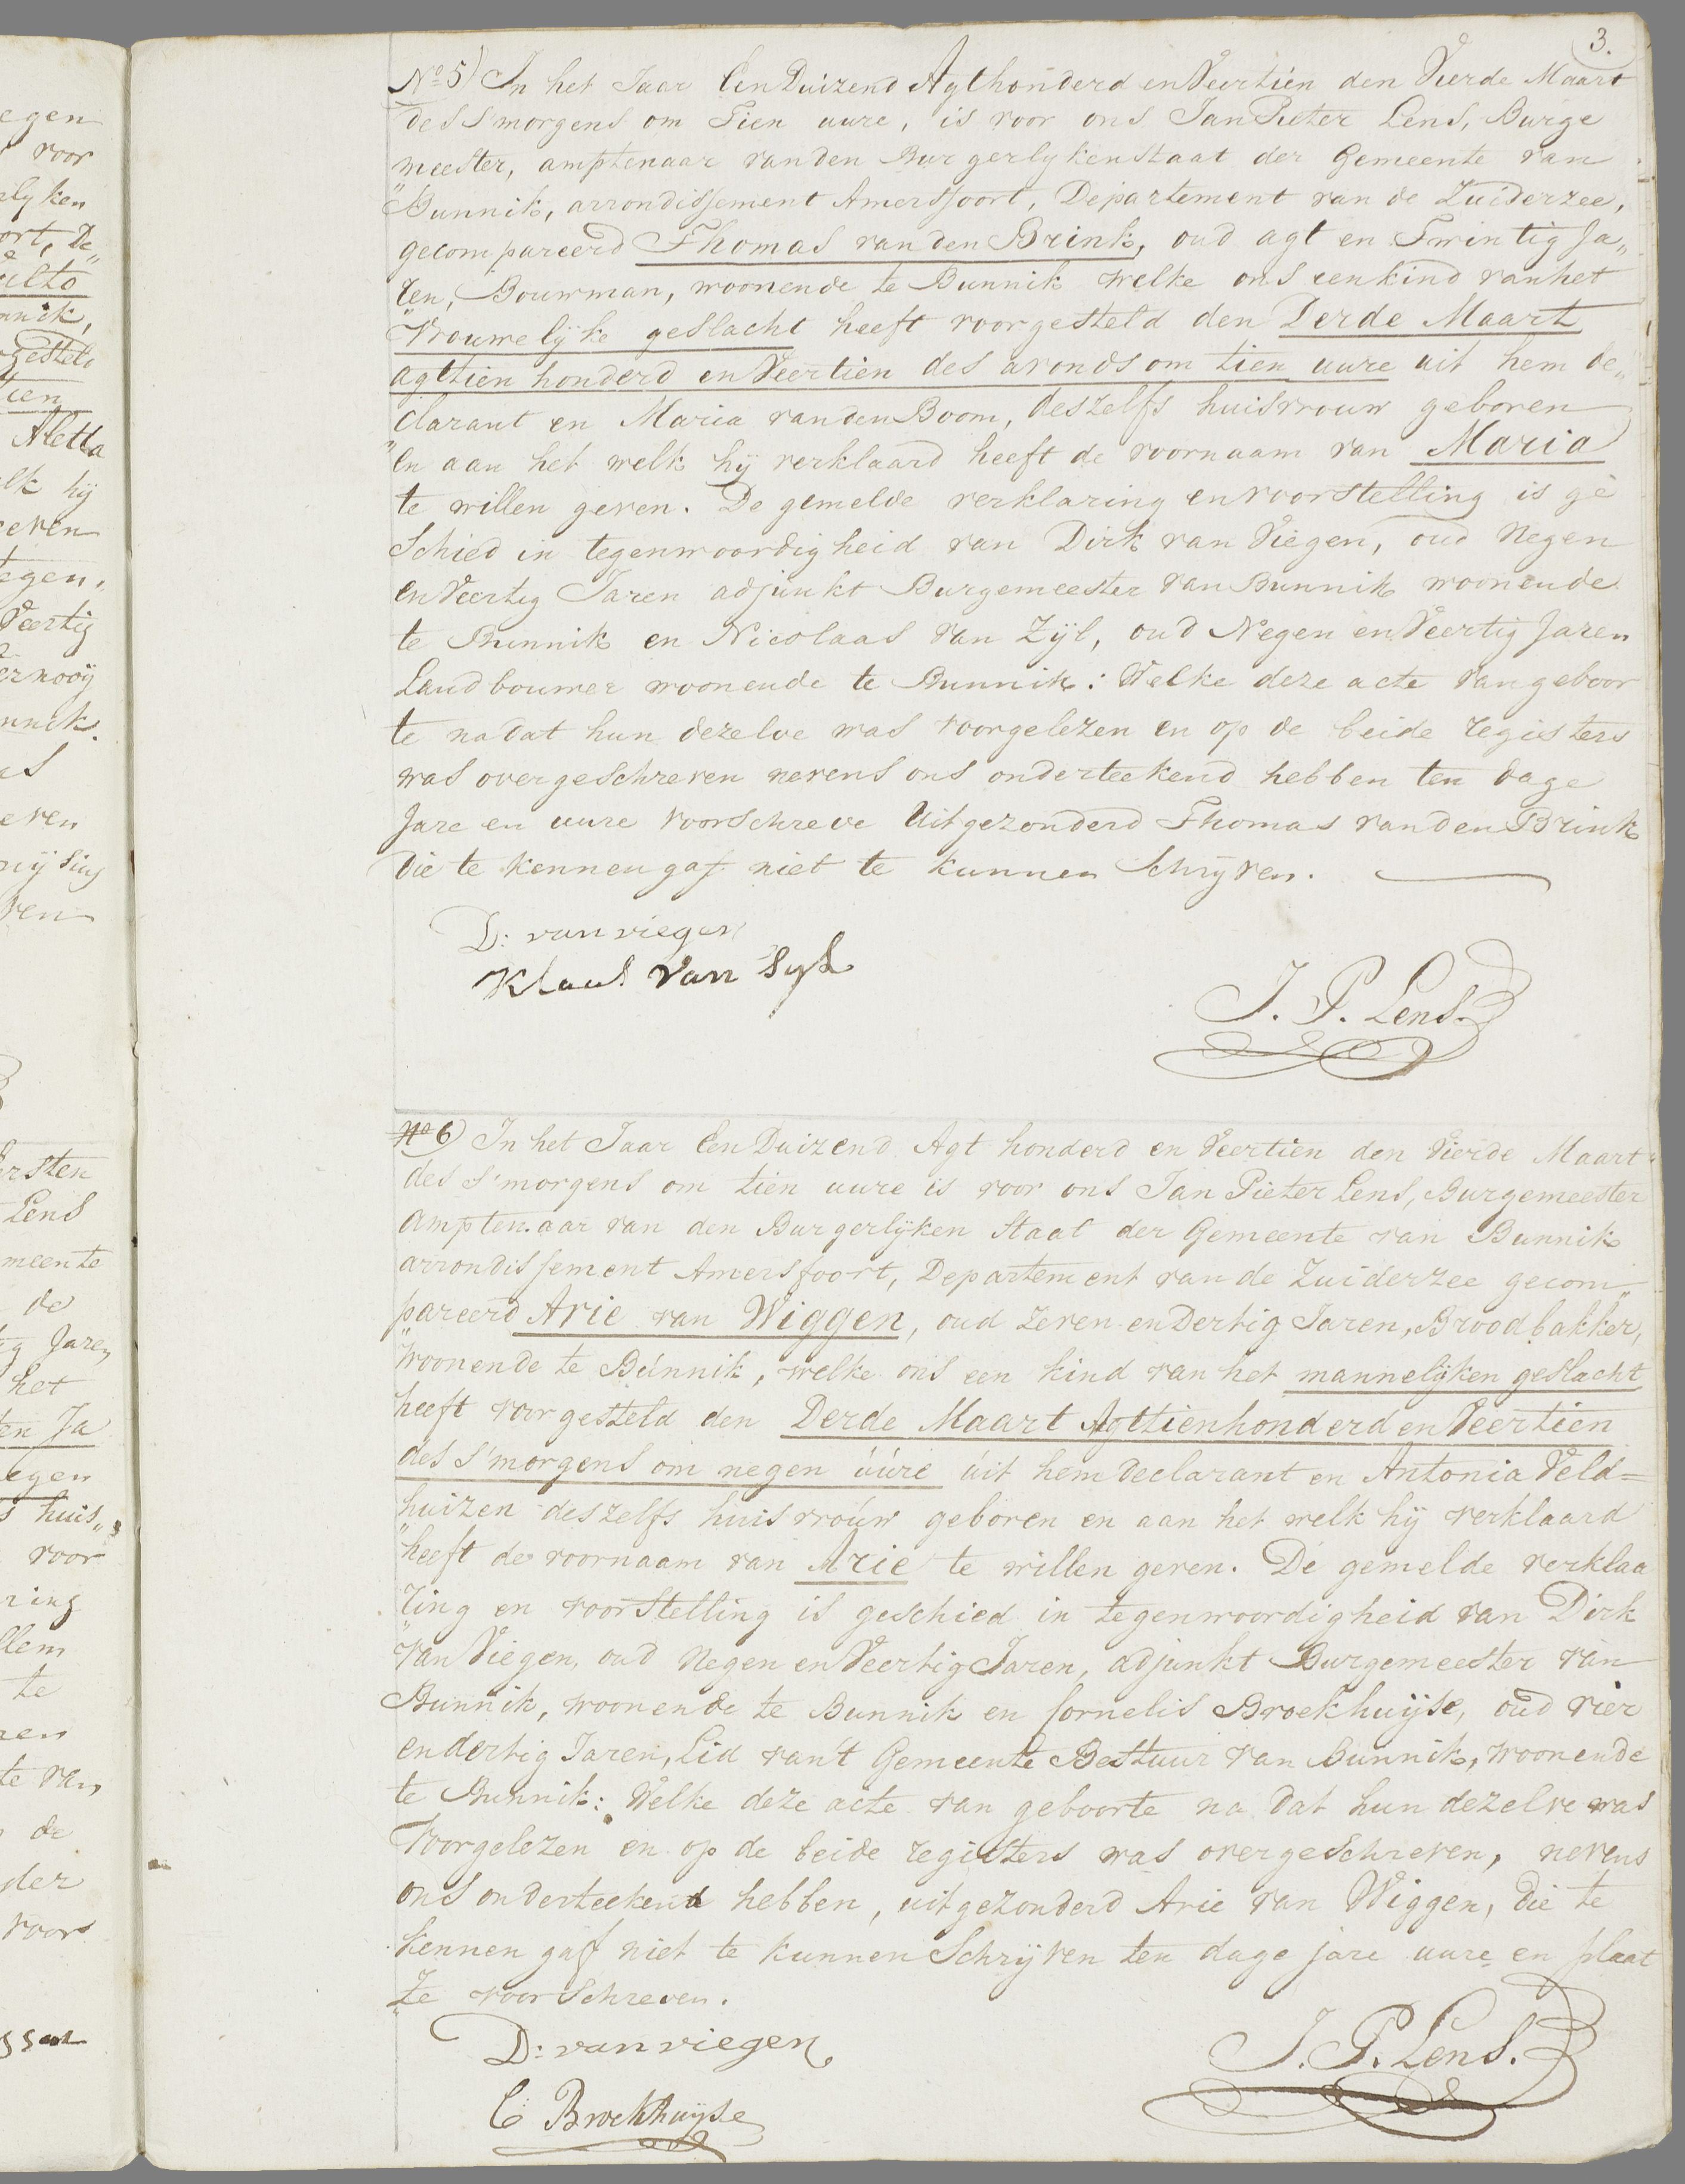 egen
voor
elyken
ort, De„
ulto
nnik,
gesteld
tien
Aletta
elk hij
geven
tegen„
Veertig
ernooij
nnik.
es
even
ven
ersten
Lens
meente
de
tig Jaren
het
en Ja
egen
s huis„
voor
ring
llem
te
ren
te van
de
der
voor
3.
No 5) In het Jaar Een Duizend Agthonderd en Veertien den Vierde Maart
des s'morgens om Tien uure, is voor ons Jan Pieter Lens, Burge
meester, amptenaar van den Burgerlyken Staat der Gemeente van
"Bunnik, arrondissement Amersfoort, Departement van de Zuiderzee,
gecompareerd Thomas van den Brink, oud agt en Twintig Ja„
"ren, Bouwman, woonende te Bunnik welke ons een kind van het
"Vrouwelijke geslacht heeft voorgesteld den Derde Maart
agttien honderd en Veertien des avonds om tien uure uit hem de„
clarant en Maria van den Boom, deszelfs huisvrouw geboren
"en aan het welk hij verklaard heeft de voornaam van Maria
te willen geven. De gemelde verklaring en voorstelling is ge
Schied in tegenwoordigheid van Dirk van Viegen, oud Negen
en Veertig Jaren adjunkt Burgemeester van Bunnik woonende
te Bunnik en Nicolaas van Zijl, oud Negen en Veertig Jaren
Landbouwer woonende te Bunnik: Welke deze acte van geboor
te nadat hun dezelve was voorgelezen en op de beide registers
was overgeschreven nevens ons onderteekend hebben ten dage
Jare en uure voorschreve Uitgezonderd Thomas van den Brink
die te kennen gaf niet te kunnen Schrijven.
D: van viegen
Klaas van Syl
J. P. Lens.
No 6) In het Jaar Een Duizend Agt honderd en Veertien den Vierde Maart
des s'morgens om tien uure is voor ons Jan Pieter Lens, Burgemeester
Amptenaar van den Burgerlijken Staat der Gemeente van Bunnik
arrondissement Amersfoort, Departement van de Zuiderzee gecom„
pareerd Arie van Wiggen, oud Zeven en Dertig Jaren, Broodbakker,
"woonende te Bunnik, welke ons een kind van het mannelijken geslacht
heeft voorgesteld den Derde Maart Agttienhonderd en Veertien
des s'morgens om negen úúre úit hem declarant en Antonia Veld=
huizen deszelfs huisvroúw geboren en aan het welk hij verklaard
"heeft de voornaam van Arie te willen geven. De gemelde verklaa
ring en voorstelling is geschied in tegenwoordigheid van Dirk
"van Viegen, oud Negen en Veertig Jaren, adjunkt Burgemeester van
Bunnik, woonende te Bunnik en Cornelis Broekhuijse, oud vier
en dertig Jaren, Lid van't Gemeente Bestuur van Bunnik, woonende
te Bunnik: Welke deze acte van geboorte na dat hun dezelve was
voorgelezen en op de beide registers was overgeschreven, nevens
ons onderteekend hebben, uitgezonderd Arie van Wiggen, die te
kennen gaf niet te kunnen Schrijven ten dage jare uure en plaat
"ze voorschreven.
D: van viegen
C Broekhuijse
J. P. Lens.